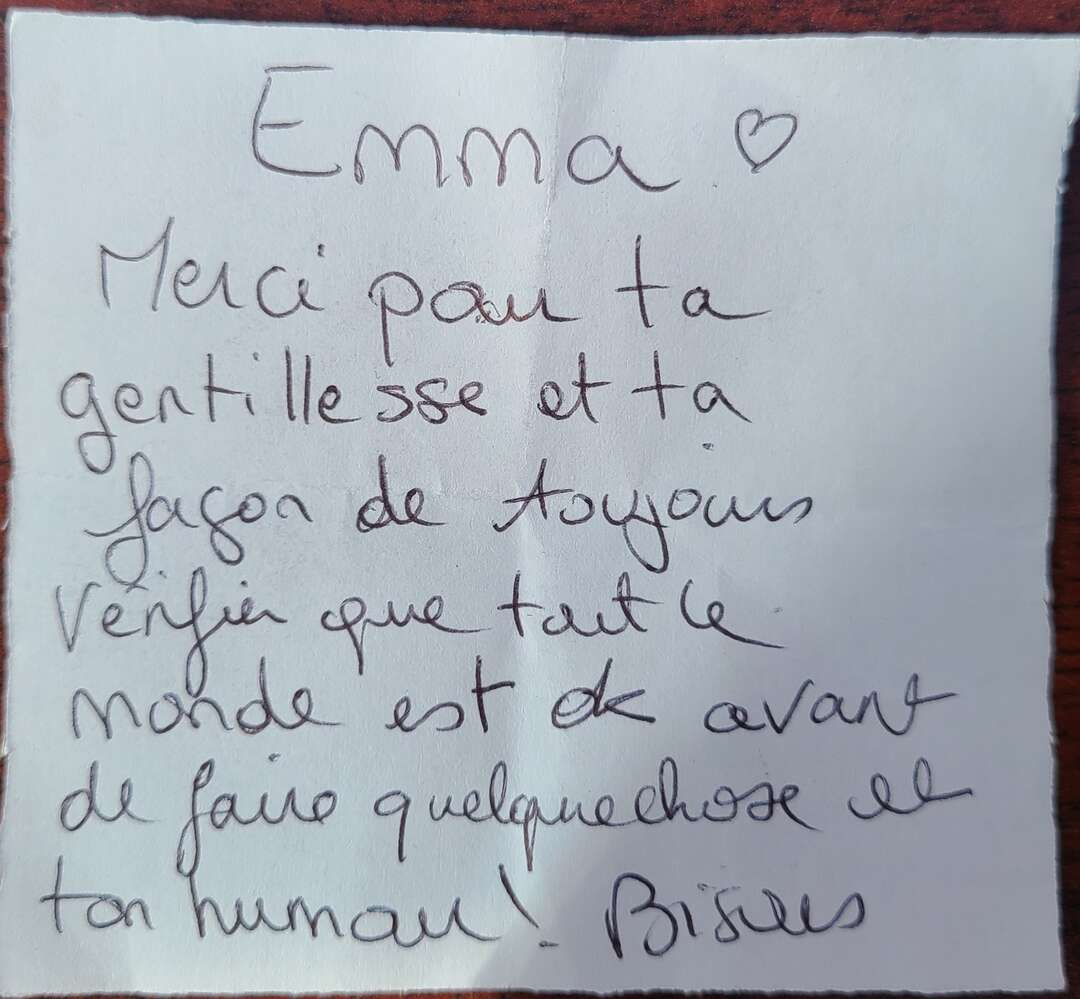 Emma ♡
Merci pour ta
gentillesse et ta
façon de toujours
vérifier que tout le
monde est ok avant
de faire quelquechose et
ton humour! Bisous